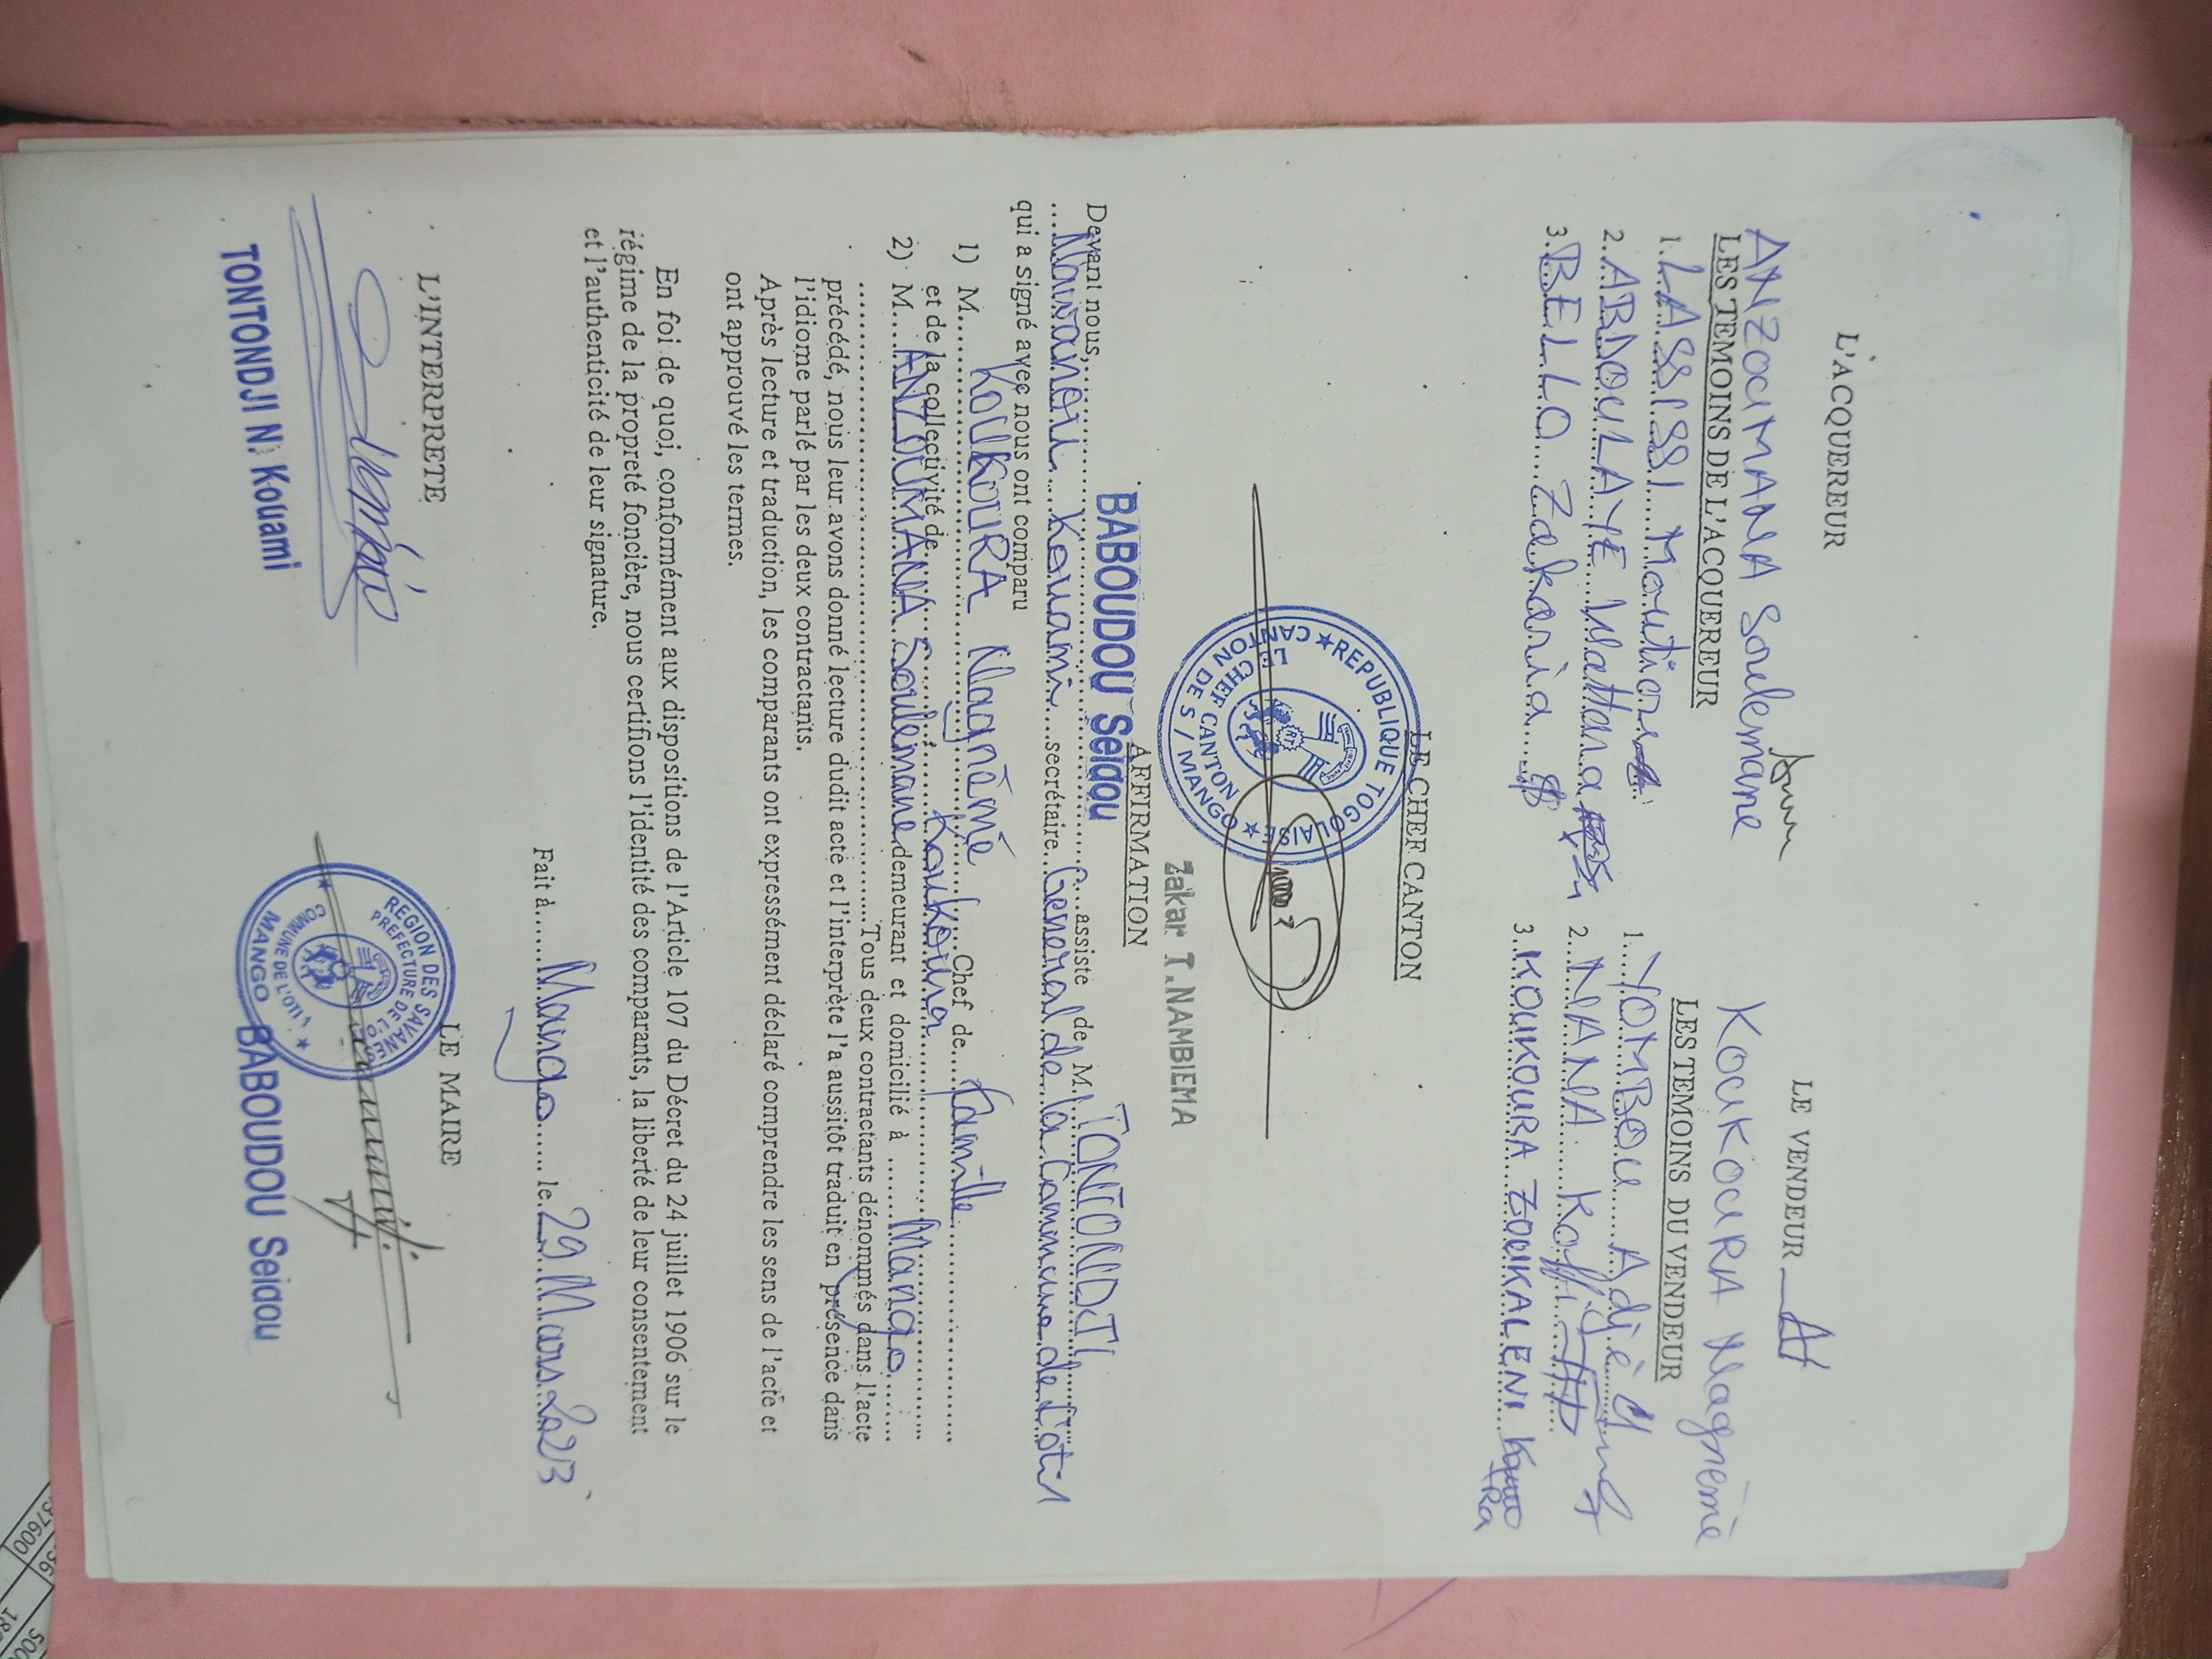 L'ACQUEREUR
LE VENDEUR
ANZOUMANA Soulemane
KOUKOURA Nagnémé
LES TEMOINS DE L'ACQUEREUR
LES TEMOINS DU VENDEUR
1. LASSISSI Moutiou
1. YOMBOU Adjé
2. ABDOULAYE Mattana
2. NANA Koffi
3. BELLO Zakaria
3. KOUKOURA ZOUKALENI
LE CHEF CANTON
REPUBLIQUE TOGOLAISE
CANTON DE S / MANGO
LE CHEF CANTON
Zakar T. NAMBIEMA
AFFIRMATION
BABOUDOU Seidou
Devant nous, assisté de M. TONTONDJI
Nawanou Kouami secrétaire General de la Commune de l'oti 1
qui a signé avec nous ont comparu
1) M. KOUKOURA Nagnémé Chef de famille
et de la collectivité de Koukoura
2) M. ANZOUMANA Soulemane demeurant et domicilié à Mango
Tous deux contractants dénommés dans l'acte
précédé, nous leur avons donné lecture dudit acte et l'interprète l'a aussitôt traduit en présence dans
l'idiome parlé par les deux contractants.
Après lecture et traduction, les comparants ont expressément déclaré comprendre les sens de l'acte et
ont approuvé les termes.
En foi de quoi, conformément aux dispositions de l'Article 107 du Décret du 24 juillet 1906 sur le
régime de la propreté foncière, nous certifions l'identité des comparants, la liberté de leur consentement
et l'authenticité de leur signature.
Fait à Mango le 29 Mars 2023
L'INTERPRETE
LE MAIRE
REGION DES SAVANES
PREFECTURE DE L'OTI
COMMUNE DE L'OTI 1
MANGO
TONTONDJI N. Kouami
BABOUDOU Seidou
37600